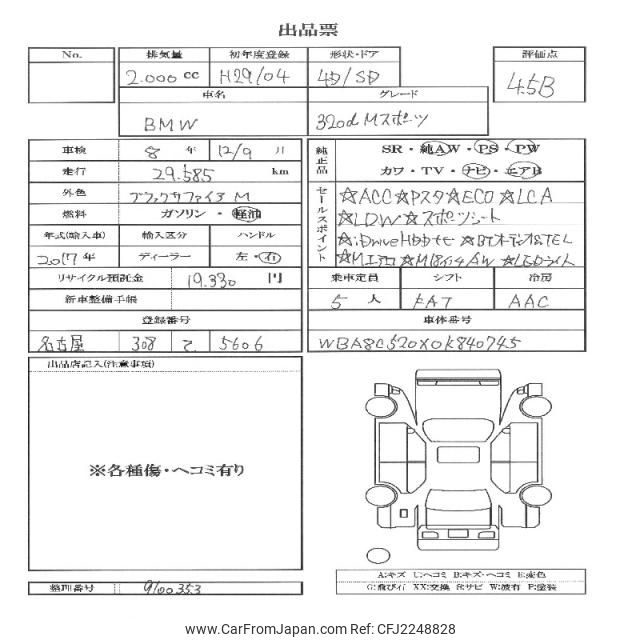 出品票
No. 排気量 初年度登録 形状・ドア 評価点
2.000 cc H29/04 4D/SD 4.5B
車名 グレード
BMW 320d Mスポーツ
車検 8 年 12/9 月 純正品 SR・純AW・PS・PW
走行 29.585 km カワ・TV・ナビ・エアB
外色 ブラックサファイア M セールスポイント ☆ACC☆Pスタ☆ECO☆LCA
燃料 ガソリン・軽油 ☆LDW☆スポーツシート
年式(輸入車) 輸入区分 ハンドル ☆iDriveHDDナビ ☆BTオーディオ&TEL
2017年 ディーラー 左・右 ☆Mエアロ☆M18インチAW☆LEDライト
リサイクル預託金 19.330 円 乗車定員 シフト 冷房
新車整備手帳 5 人 FAT AAC
登録番号 車体番号
名古屋 308 て 5606 WBA8C520X0K840745
出品店記入(注意事項)
※各種傷・ヘコミ有り
A:キズ U:ヘコミ B:キズ・ヘコミ E:変色
整理番号 9100353 G:飛び石 XX:交換 S:サビ W:波有 P:塗装
www.CarFromJapan.com | Ref. ID: CFJ2248828